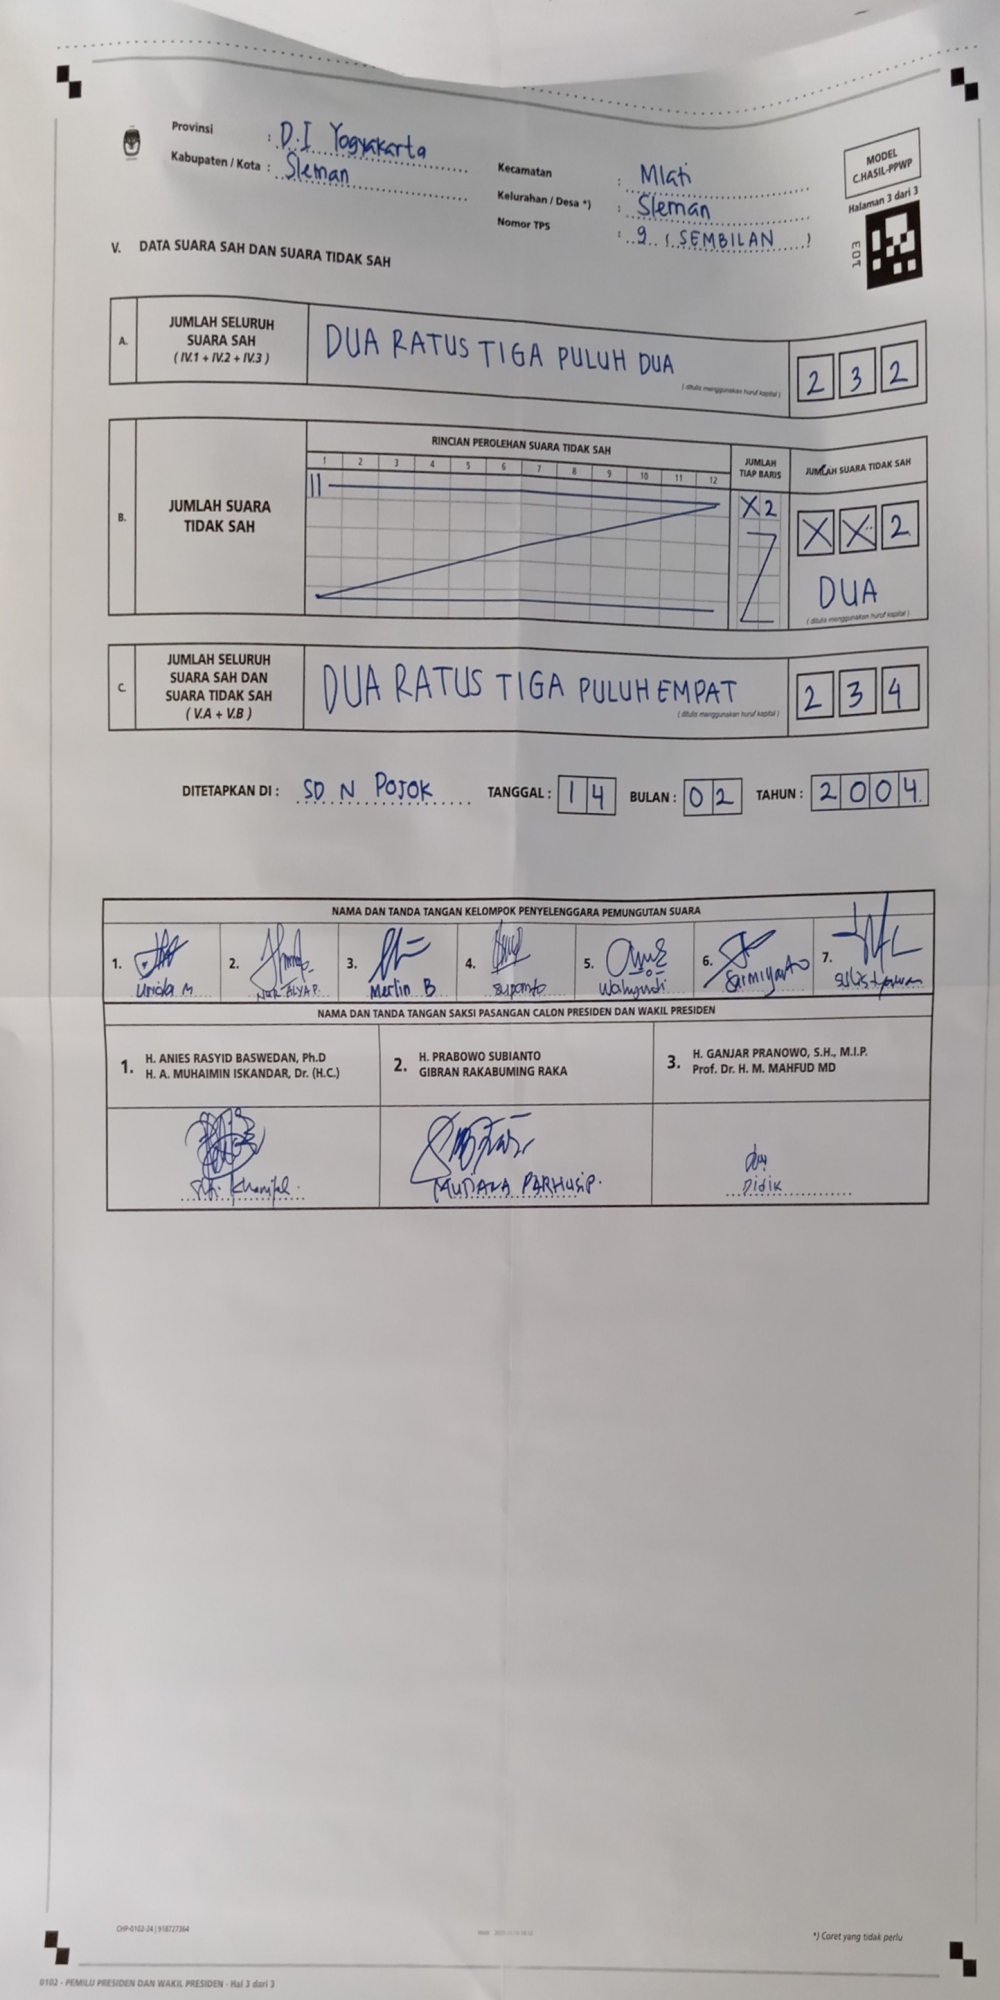 Provinsi : D.I Yogyakarta
Kabupaten / Kota : Sleman
Kecamatan : Mlati
Kelurahan / Desa *) : Sleman
Nomor TPS : 9 ( SEMBILAN )
MODEL
C.HASIL-PPWP
Halaman 3 dari 3
E01
V. DATA SUARA SAH DAN SUARA TIDAK SAH
A. JUMLAH SELURUH
SUARA SAH
( IV.1 + IV.2 + IV.3 )
DUA RATUS TIGA PULUH DUA
( ditulis menggunakan huruf kapital )
2 3 2
B. JUMLAH SUARA
TIDAK SAH
RINCIAN PEROLEHAN SUARA TIDAK SAH
1 2 3 4 5 6 7 8 9 10 11 12
JUMLAH
TIAP BARIS
X 2
JUMLAH SUARA TIDAK SAH
X X 2
DUA
( ditulis menggunakan huruf kapital )
C. JUMLAH SELURUH
SUARA SAH DAN
SUARA TIDAK SAH
( V.A + V.B )
DUA RATUS TIGA PULUH EMPAT
( ditulis menggunakan huruf kapital )
2 3 4
DITETAPKAN DI : SD N POJOK TANGGAL : 1 4 BULAN : 0 2 TAHUN : 2 0 0 4
NAMA DAN TANDA TANGAN KELOMPOK PENYELENGGARA PEMUNGUTAN SUARA
1. 2. 3. 4. 5. 6. 7.
NUR ALYA P. Merlin B Sarmiyanto
NAMA DAN TANDA TANGAN SAKSI PASANGAN CALON PRESIDEN DAN WAKIL PRESIDEN
1. H. ANIES RASYID BASWEDAN, Ph.D
H. A. MUHAIMIN ISKANDAR, Dr. (H.C.)
2. H. PRABOWO SUBIANTO
GIBRAN RAKABUMING RAKA
3. H. GANJAR PRANOWO, S.H., M.I.P.
Prof. Dr. H. M. MAHFUD MD
PARHUSIP.
Didik
CHP-0102-24 | 918727364
*) Coret yang tidak perlu
0102 - PEMILU PRESIDEN DAN WAKIL PRESIDEN - Hal 3 dari 3